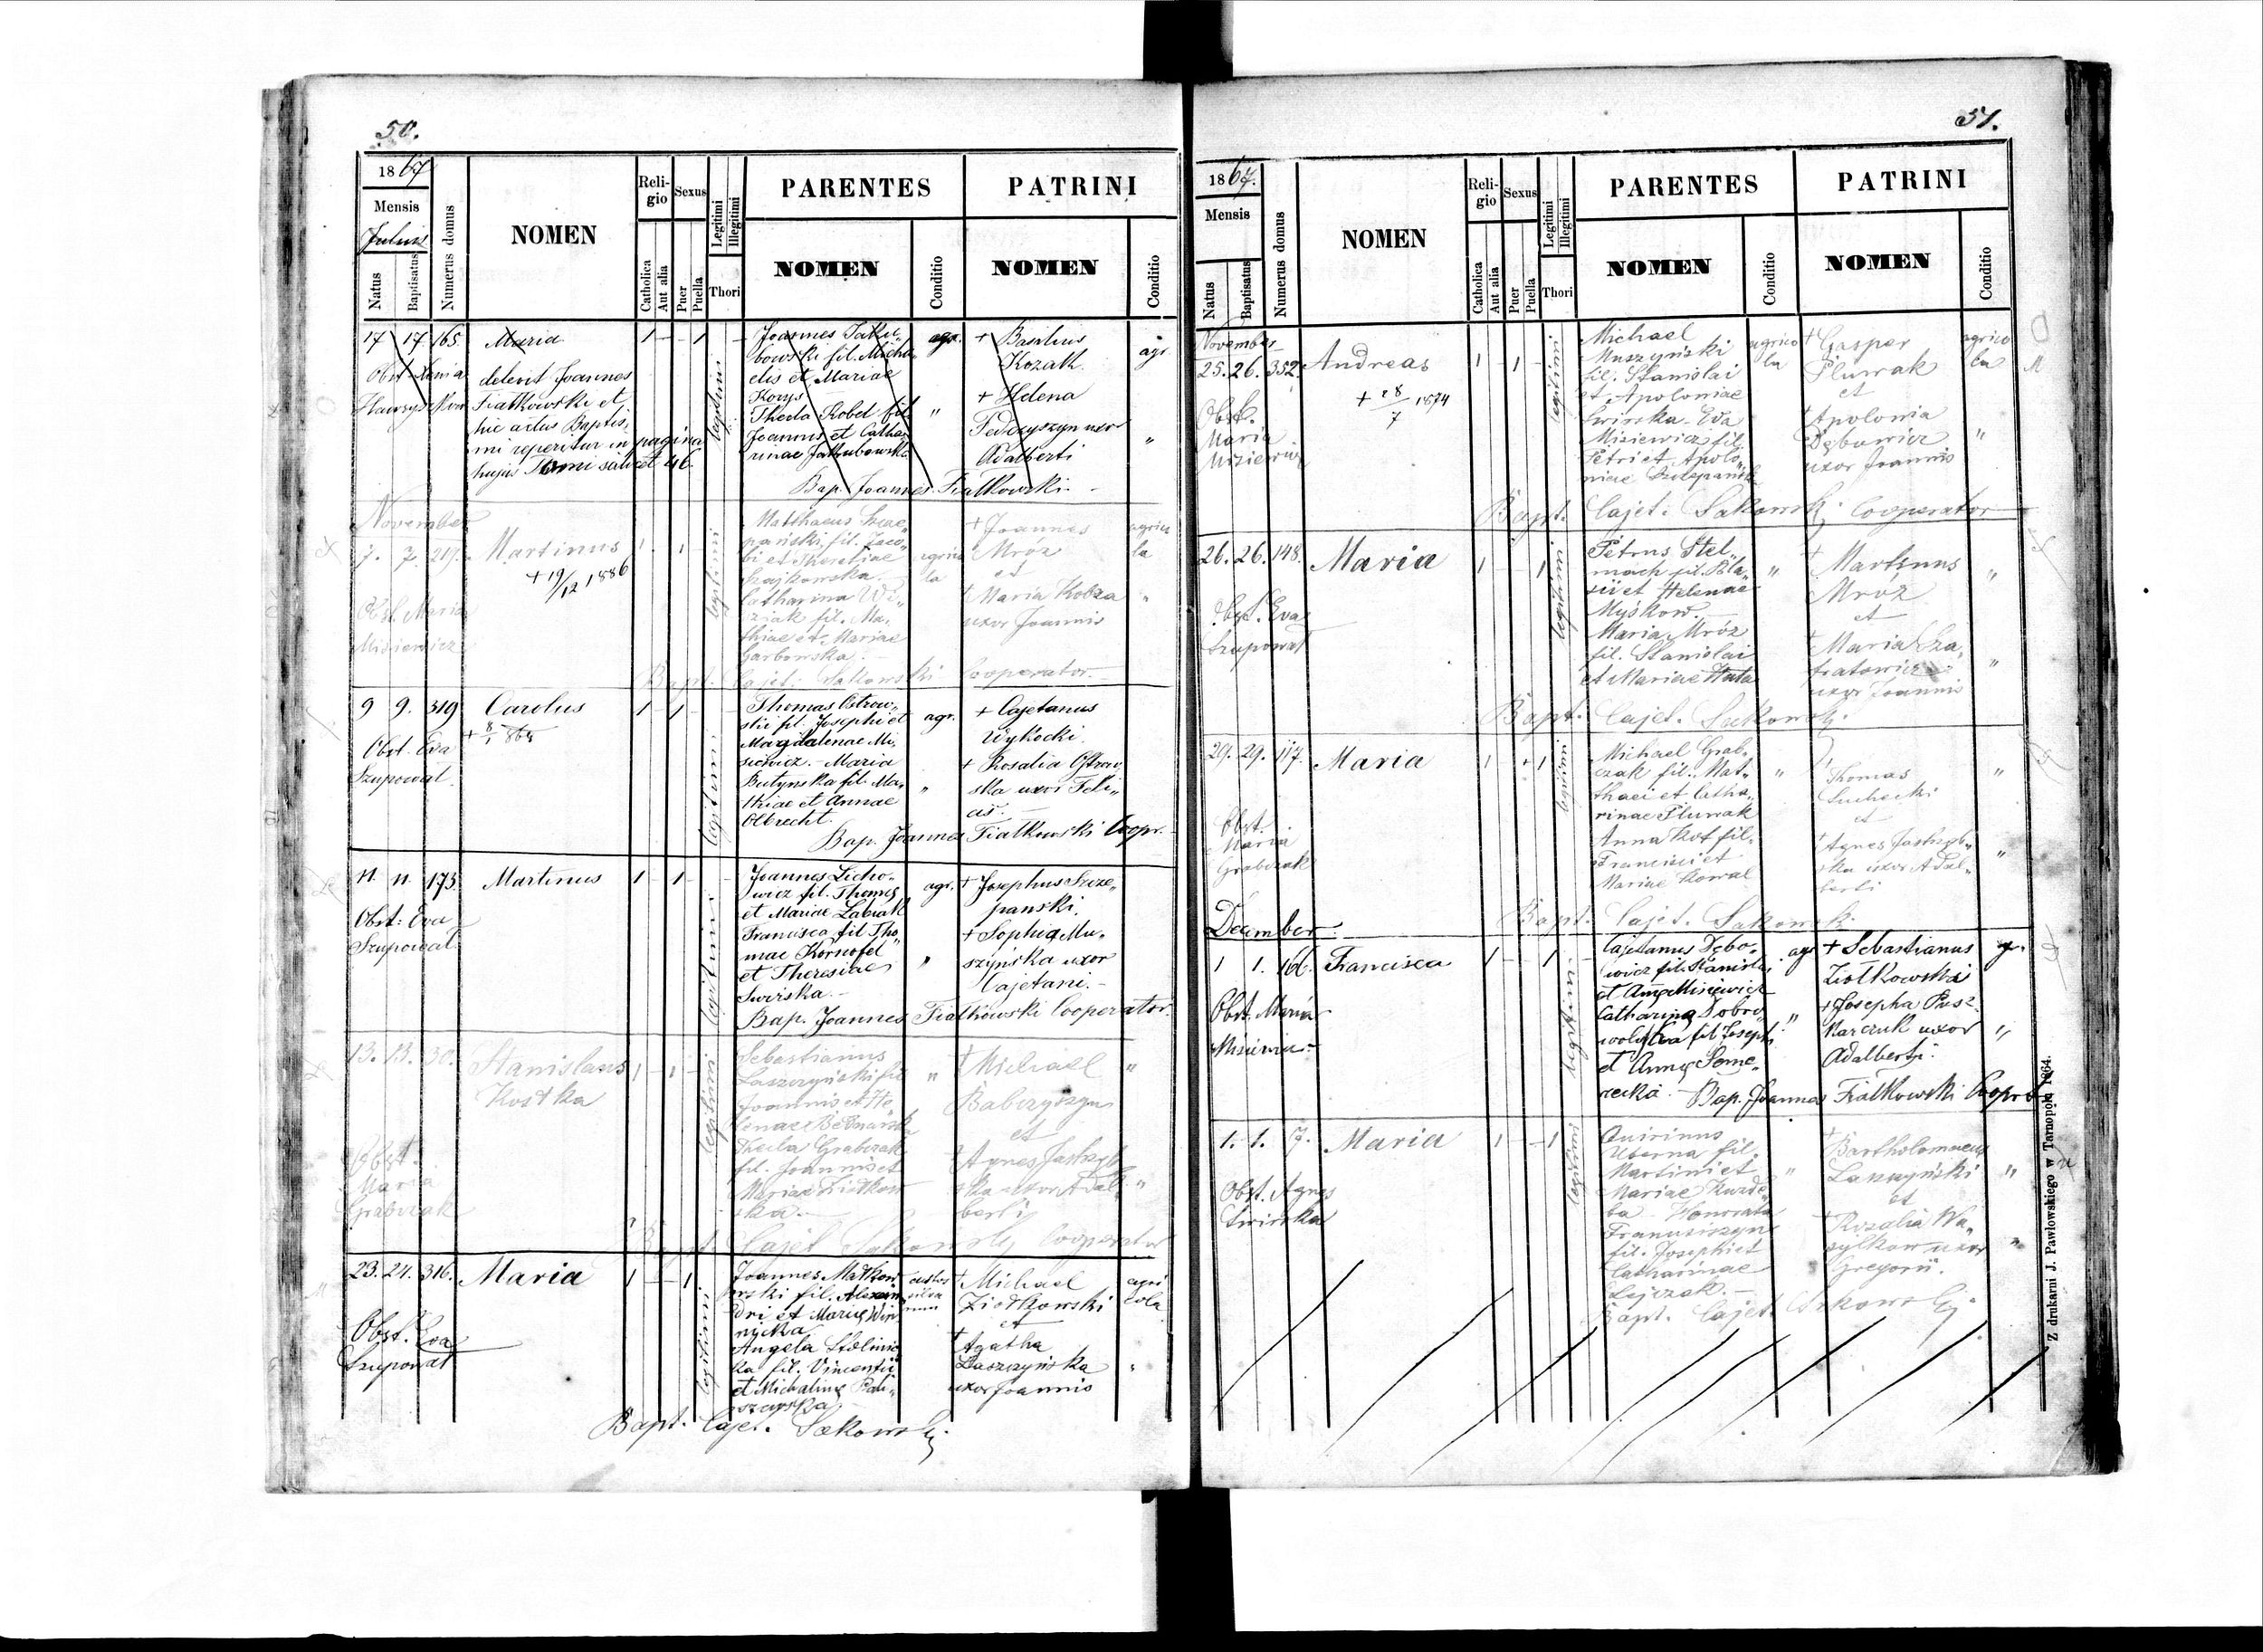 50.
1867
Mensis
Julius
Natus
Baptisatus
Numerus domus
NOMEN
Religio
Catholica
Aut alia
Sexus
Puer
Puella
Legitimi
Illegitimi
Thori
PARENTES
NOMEN
Conditio
PATRINI
NOMEN
Conditio
17 17 165 Maria 1 — — 1
legitimi
Obst. Xenia
Hawrys
delevit Joannes
Fiałkowski et
hic actus Baptis„
mi reperitur in pagina
hujus Tomi 46
Joannes Jaku„
bowski fil. Micha
elis et Mariae
Korys
Thecla Robel fil.
Joannis et Catha
rinae Jakubowska
agr.
"
+ Basilius
Kozak
+ Helena
Fedczyszyn uxor
Adalberti
agr
"
Bap. Joannes Fiałkowski
November
7. 7. 217. Martinus 1 — 1 —
+ 19/12 1886
legitimi
Obst. Maria
Misiewicz
Matthaeus Szcze„
pański fil. Jaco„
bi et Theresiae
Czajkowska.
Catharina Wi„
ziak fil. Ma„
thiae et Mariae
Garbowska.
agrico
la
+ Joannes
Mróz
et
Maria Kobza
uxor Joannis
agrico
la
"
Bapt. Cajet. Sakowski Cooperator
9 9. 319 Carolus 1 1
+ 8/1 868
legitimi
Obst. Eva
Szupował.
Thomas Ostrow„
ski fil. Josephi et
Magdalenae Mi„
siewicz. — Maria
Butynska fil. Ma„
thiae et Annae
Olbrecht.
agr.
"
+ Cajetanus
Wysocki.
+ Rosalia Ostrow
ska uxor Feli„
cis.
Bap. Joannes Fiałkowski Coopr.
11. 11. 173. Martinus 1 — 1 —
legitimi
Obst: Eva
Szupował
Joannes Licho„
wicz fil. Thomae
et Mariae Łabiak
Francisca fil Tho„
mae Kornofel
et Theresiae
Swirska. —
agr.
"
+ Josephus Szcze„
panski.
+ Sophia Mu„
szyńska uxor
Cajetani. —
Bap. Joannes Fiałkowski Cooperator.
13. 13. 30. Stanislaus 1 — 1 —
Kostka
legitimi
Obst.
Maria
Grabczak
Sebastianus
Łaszczyński fil
Joannis et He„
lenae Bednarska
Thecla Grabczak
fil. Joannis et
Mariae Ziołkow
ska. —
"
+ Michael
Babczyszyn
et
+ Agnes Jastrzęb
ska uxor Adal„
berti
"
"
Bapt. Cajet Sakowski Cooperator
23. 24. 316. Maria 1 — — 1
legitimi
Obst. Eva
Szupował
Joannes Małkow
wski fil. Alexan
dri et Mariae Win
nicka
Angela Stolinic
ka fil. Vincentii
et Michalinae Pali„
szewska
custos
silva
rum
+ Michael
Ziołkowski
et
+ Agatha
Łaszczyńska
uxor Joannis
agri
cola
"
Bapt. Cajet. Sakowski
51.
1867.
Mensis
Natus
Baptisatus
Numerus domus
NOMEN
Religio
Catholica
Aut alia
Sexus
Puer
Puella
Legitimi
Illegitimi
Thori
PARENTES
NOMEN
Conditio
PATRINI
NOMEN
Conditio
November
25. 26. 352. Andreas 1 1
+ 28/7 1874
legitimi
Obst.
Maria
Misiewicz
Michael
Muszyński
fil. Stanislai
et Apoloniae
Swirska — Eva
Misiewicz fil.
Petri et Apolo„
niae Szczepańsk
agrico
la
+ Gasper
Pluwak
et
+ Apolonia
Dębowicz
uxor Joannis
agrico
la
"
Bapt. Cajet. Sakowski Cooperator
26. 26. 148. Maria 1 — — 1
legitimi
Obst. Eva
Szupował
Petrus Stel„
mach fil. Bla„
sii et Helenae
Myśkow. —
Maria Mróz
fil. Stanislai
et Mariae Huta
"
+ Martinus
Mróz
et
+ Maria Sza„
fratowicz
uxor Joannis
"
"
Bapt. Cajet. Sakowski.
29. 29. 117. Maria 1 — + 1
legitimi
Obst.
Maria
Grabczak
Michael Grab„
czak fil. Mat„
thaei et Catha„
rinae Pluwak
Anna Kot fil.
Francisci et
Mariae Kowal
"
Thomas
Suchecki
et
+ Agnes Jastrzęb„
ska uxor Adal„
berti
"
"
Bapt. Cajet. Sakowski
December.
1 1. 161. Francisca 1 — — 1 —
legitimi
Obst. Maria
Misiewicz
Cajetanus Dębo„
wicz fil. Stanislai
et Annae Misiewicz
Catharina Dobro„
wolska fil. Josephi
et Annae Seme„
recka.
agr
"
+ Sebastianus
Ziołkowski
+ Josepha Pusz
Karczuk uxor
Adalberti.
gr.
"
Bap. Joannes Fiałkowski Cooprt
1. 1. 7. Maria 1 — — 1
legitimi
Obst. Agnes
Swirska
Quirinus
Uberna fil.
Martini et
Mariae Kurde„
ba — Honorata
Franusiszyn
fil. Josephi et
Catharinae
Zajczak. —
"
+ Bartholomaeus
Łaszczyński
et
+ Rosalia Wa„
sylkow uxor
Gregorii.
"
"
Bapt. Cajet. Sakowski.
Z drukarni J. Pawłowskiego w Tarnopolu 1864.